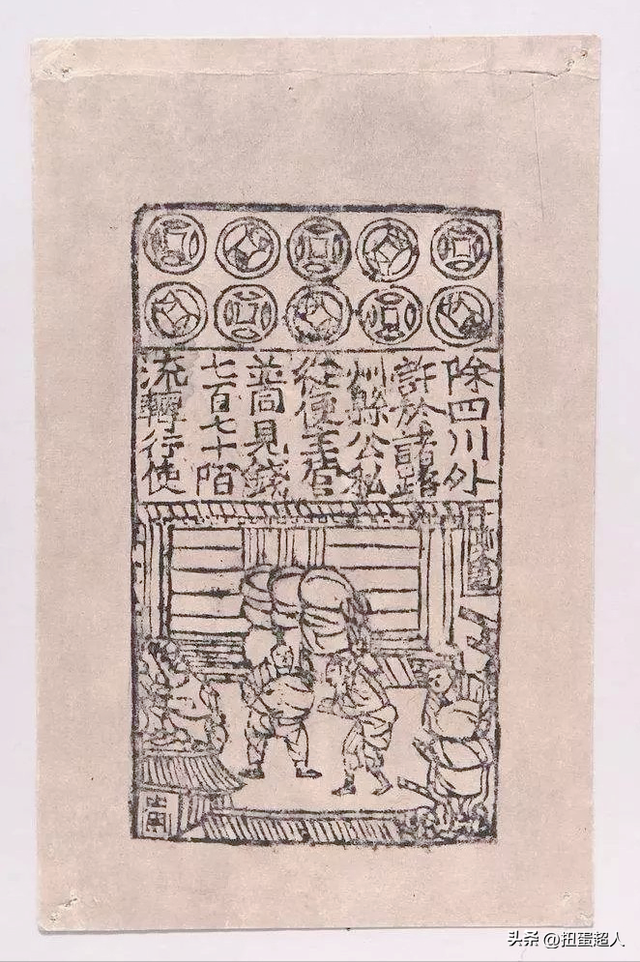 除四川外
許於諸路
州縣公私
從便主管
並同見錢
七百七十陌
流轉行使
头条 @扭蛋超人